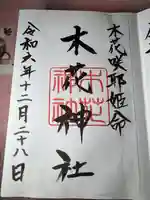 木花咲耶姫命
木花神社
木花神社
令和六年十二月二十八日